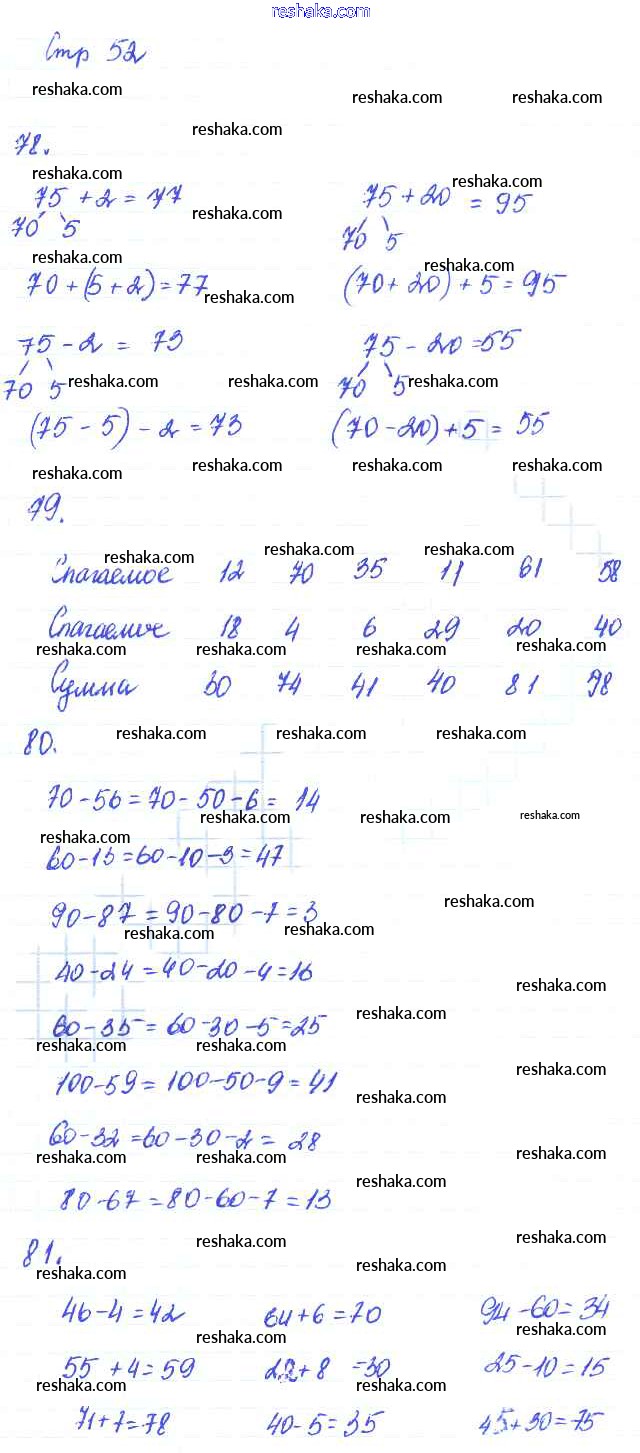 reshaka.com
Стр 52
reshaka.com reshaka.com reshaka.com
reshaka.com
78.
reshaka.com reshaka.com
75 + 2 = 77 75 + 20 = 95
reshaka.com
70 5 70 5
reshaka.com
70 + (5 + 2) = 77 (70 + 20) + 5 = 95
reshaka.com
75 - 2 = 73 75 - 20 = 55
70 5 reshaka.com reshaka.com 70 5 reshaka.com
(75 - 5) - 2 = 73 (70 - 20) + 5 = 55
reshaka.com reshaka.com reshaka.com reshaka.com
79.
reshaka.com reshaka.com reshaka.com
Слагаемое 12 70 35 11 61 58
Слагаемое 18 4 6 29 20 40
reshaka.com reshaka.com reshaka.com reshaka.com
Сумма 30 74 41 40 81 98
80. reshaka.com reshaka.com reshaka.com
70 - 56 = 70 - 50 - 6 = 14
reshaka.com reshaka.com reshaka.com
60 - 13 = 60 - 10 - 3 = 47
reshaka.com
90 - 87 = 90 - 80 - 7 = 3
reshaka.com reshaka.com
40 - 24 = 40 - 20 - 4 = 16
reshaka.com
reshaka.com
60 - 35 = 60 - 30 - 5 = 25
reshaka.com reshaka.com
reshaka.com
100 - 59 = 100 - 50 - 9 = 41
reshaka.com
60 - 32 = 60 - 30 - 2 = 28
reshaka.com reshaka.com reshaka.com
reshaka.com
80 - 67 = 80 - 60 - 7 = 13
reshaka.com reshaka.com
81.
reshaka.com reshaka.com
46 - 4 = 42 64 + 6 = 70 94 - 60 = 34
reshaka.com reshaka.com
55 + 4 = 59 22 + 8 = 30 25 - 10 = 15
reshaka.com reshaka.com reshaka.com
71 + 7 = 78 40 - 5 = 35 45 + 30 = 75
reshaka.com reshaka.com